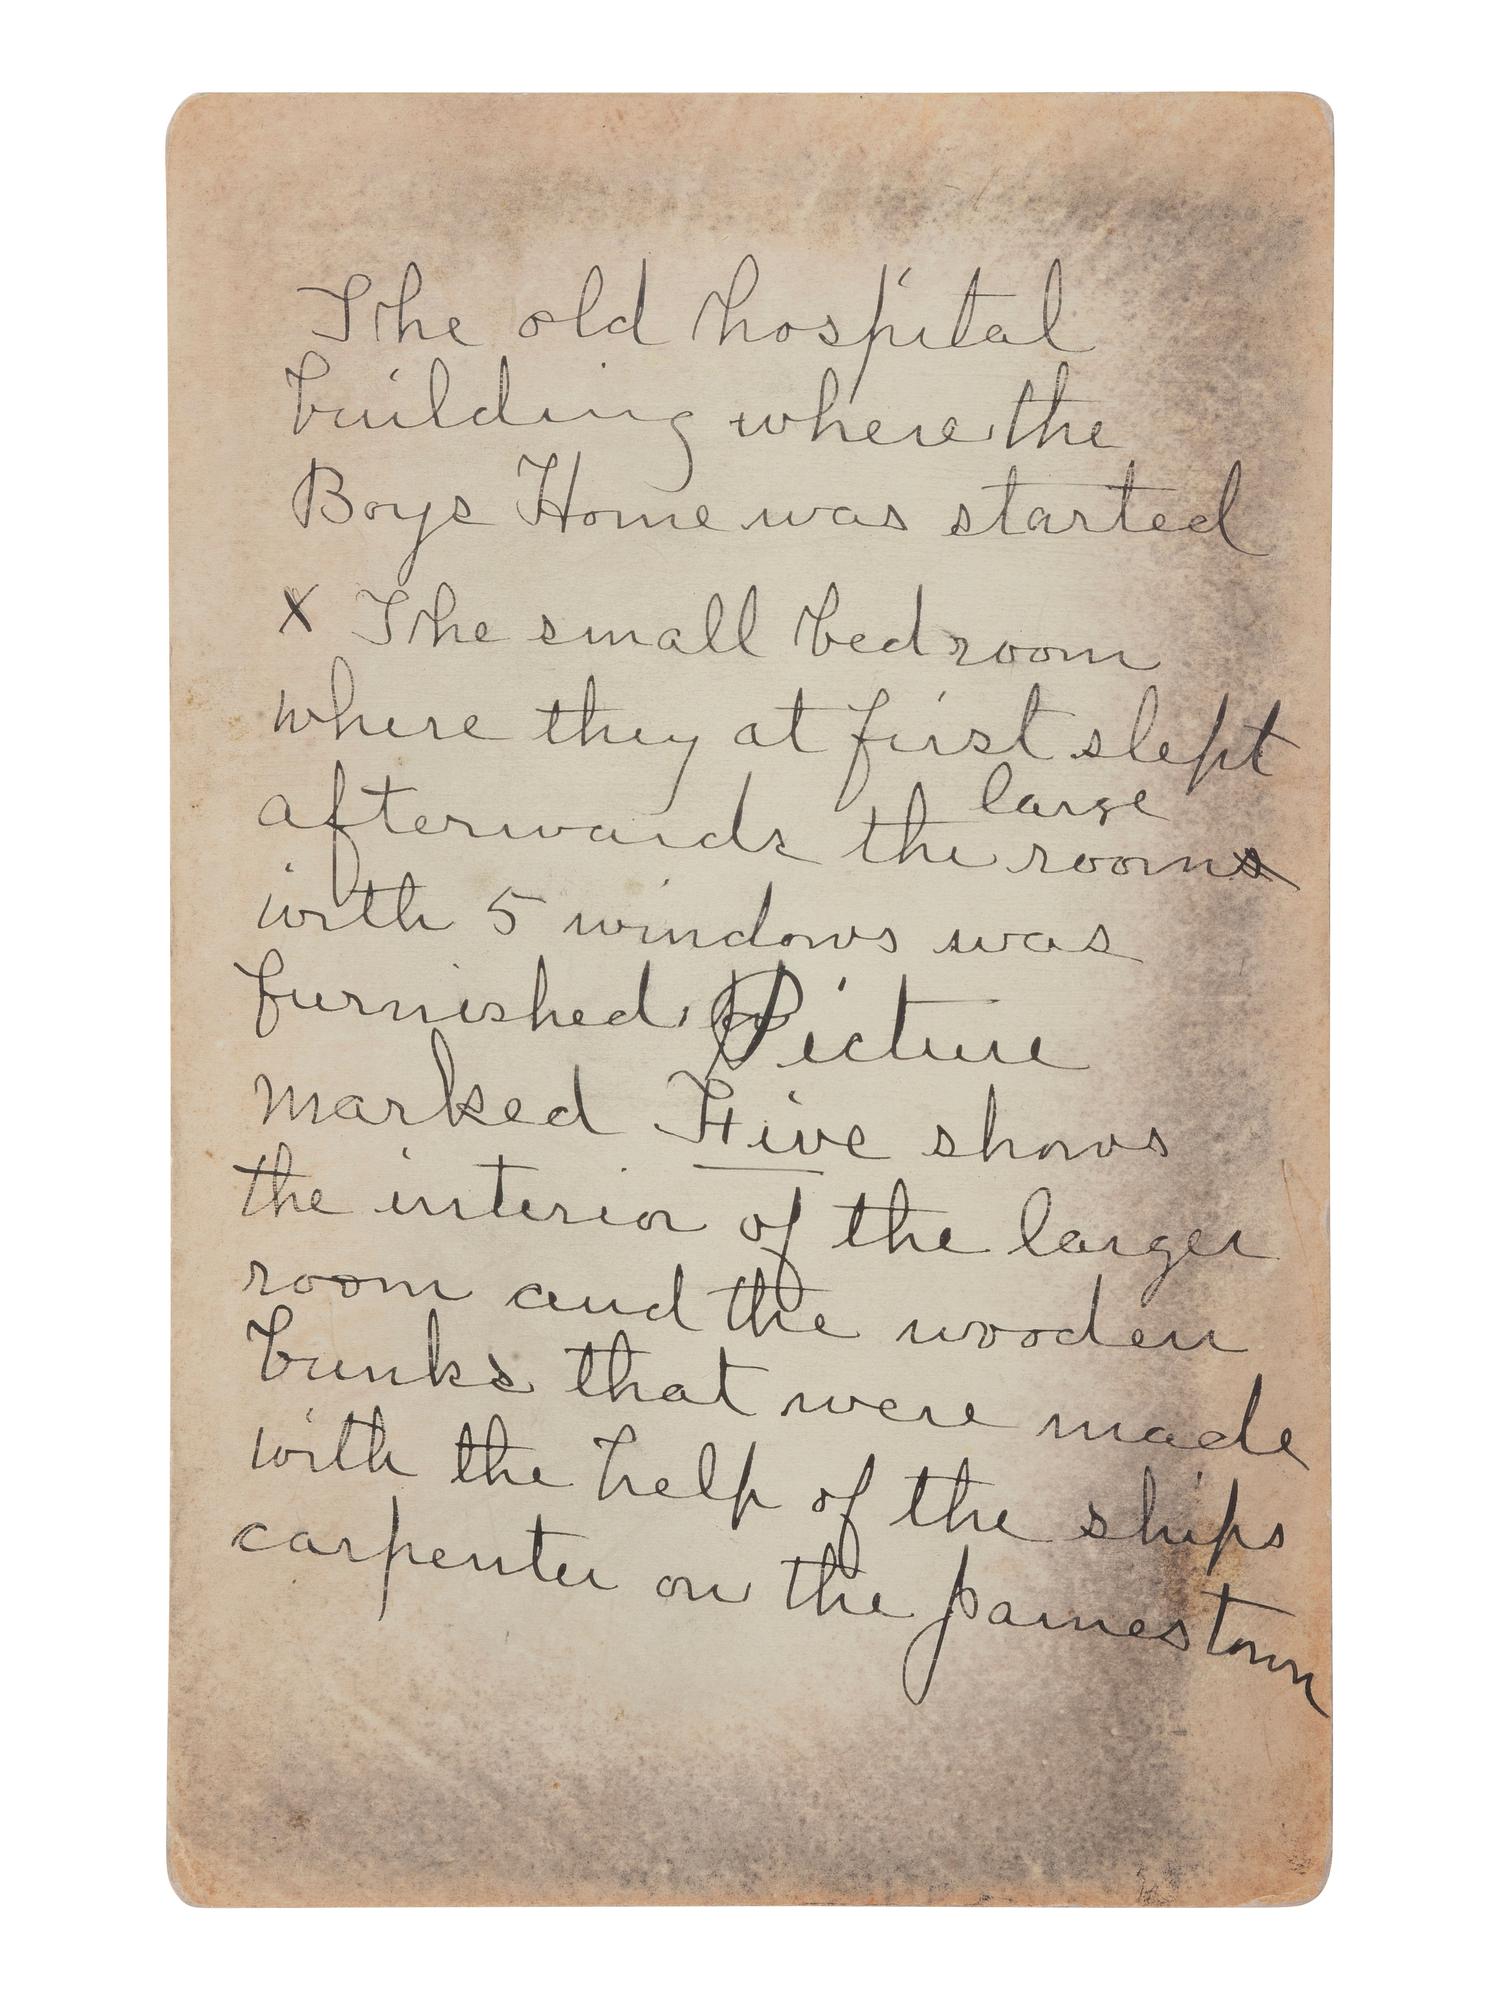 The old hospital
building where the
Boys Home was started
x The small bedroom
where they at first slept
large
afterwards the rooms
with 5 windows was
furnished. Picture
marked Five shows
the interior of the larger
room and the wooden
bunks that were made
with the help of the ships
carpenter on the Jamestown